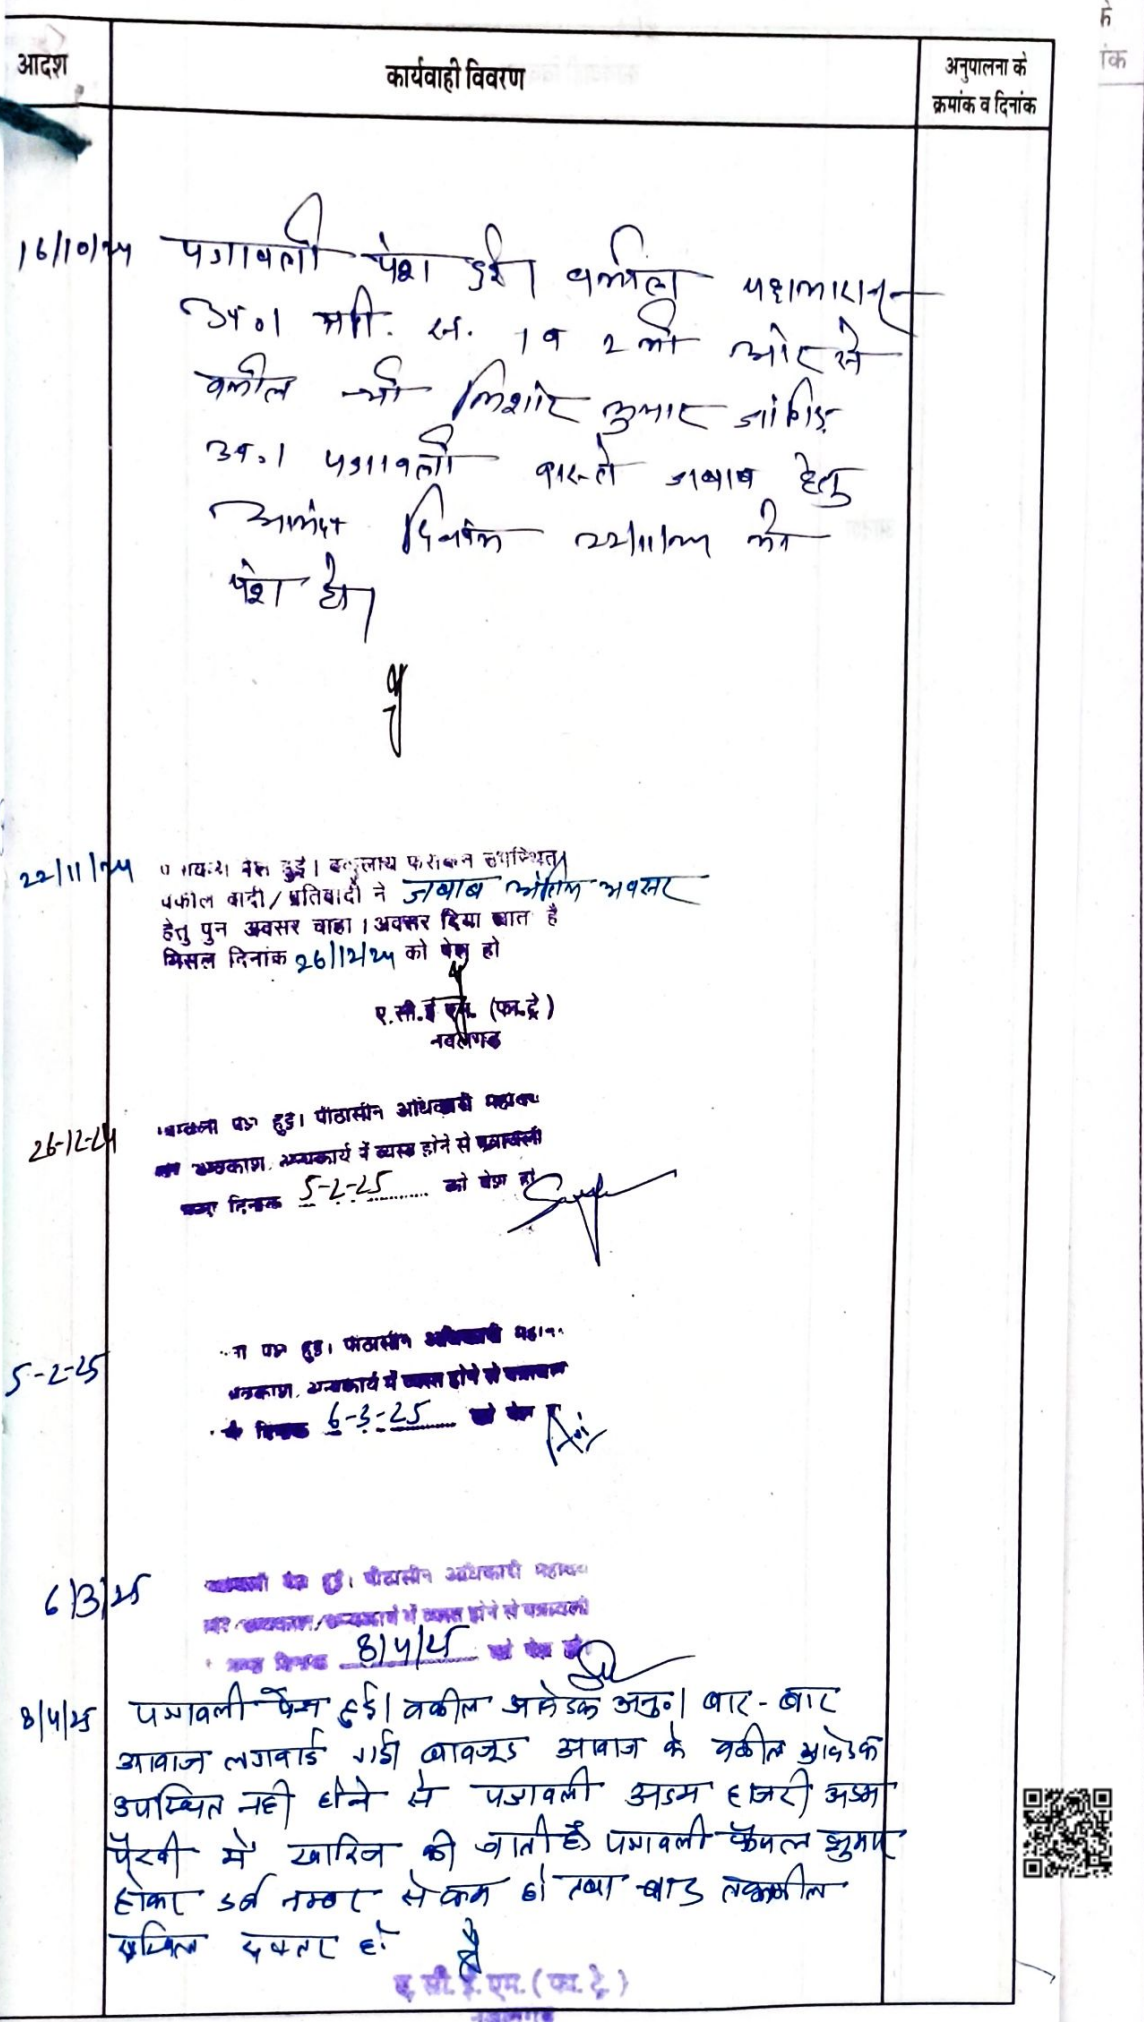 आदेश
कार्यवाही विवरण
अनुपालना के
क्रमांक व दिनांक
16/10/24 पत्रावली पेश हुई। वकील पक्षकारान
उप०। प्रति. सं. 1 व 2 की ओर से
वकील श्री किशोर कुमार जांगिड़
उप.। पत्रावली वास्ते जबाब हेतु
आईन्दा दिनांक 22/11/24 को
पेश हो।
22/11/24 हुई। उपस्थित।
वकील वादी/प्रतिवादी ने जबाब अंतिम अवसर
हेतु पुन अवसर चाहा। अवसर दिया जात है
मिसल दिनांक 26/12/24 को पेश हो
ए.सी.ई एम. (फा.ट्रे)
नवलगढ
26-12-24 हुई। पीठासीन अधिकारी महोदय
अवकाश, अन्यकार्य में व्यस्त होने से पत्रावली
दिनांक 5-2-25 को पेश हो
5-2-25 हुई। पीठासीन अधिकारी
अवकाश, अन्यकार्य में व्यस्त होने से
दिनांक 6-3-25 को पेश
6/3/25 हुई। पीठासीन अधिकारी महोदय
अवकाश/अन्यकार्य में व्यस्त होने से पत्रावली
दिनांक 8/4/25 को पेश हो
8/4/25 पत्रावली पेश हुई। वकील आवेदक अनु०। बार-बार
आवाज लगवाई गई। बावजूद आवाज के वकील आवेदक
उपस्थित नही होने से पत्रावली अदम हाजरी अदम
पैरवी में खारिज की जाती है। पत्रावली फैसल शुमार
होकर दर्ज नम्बर से कम हो तथा बाद तकमील
दाखिल दफ्तर हो
ए.सी.ई.एम.(फा.ट्रे.)
नवलगढ